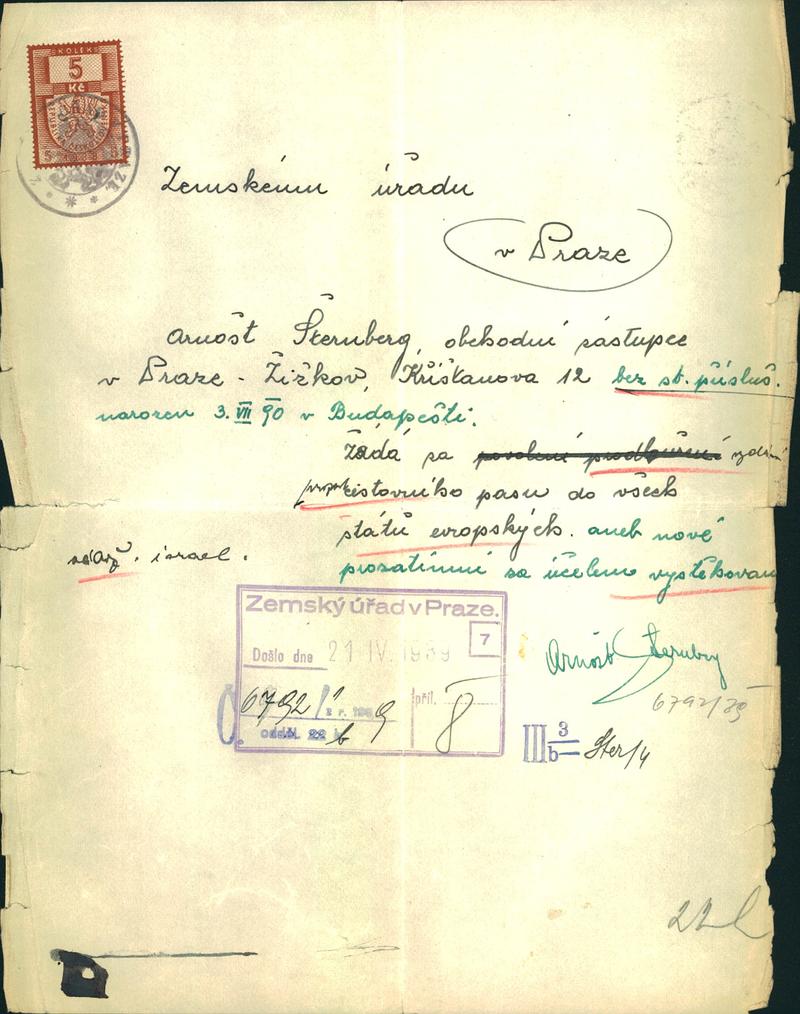 KOLEK
5
Kč
Zemskému úřadu
v Praze
Arnošt Šternberg, obchodní zástupce
v Praze - Žižkov, Křišťanova 12 bez st. přísluš.
narozen 3. VII 90 v Budapešti.
Žádá za povolení prodloužení
cestovního pasu do všech
států evropských. aneb nové
prozatimní za účelem vystěhovan
israel.
Zemský úřad v Praze.
7
Došlo dne 21 IV. 1939
6792/ z r. 1939
příl. 8
odděl. 22 b
Arnošt Šternberg
6792/39
III 3
b Ster/4